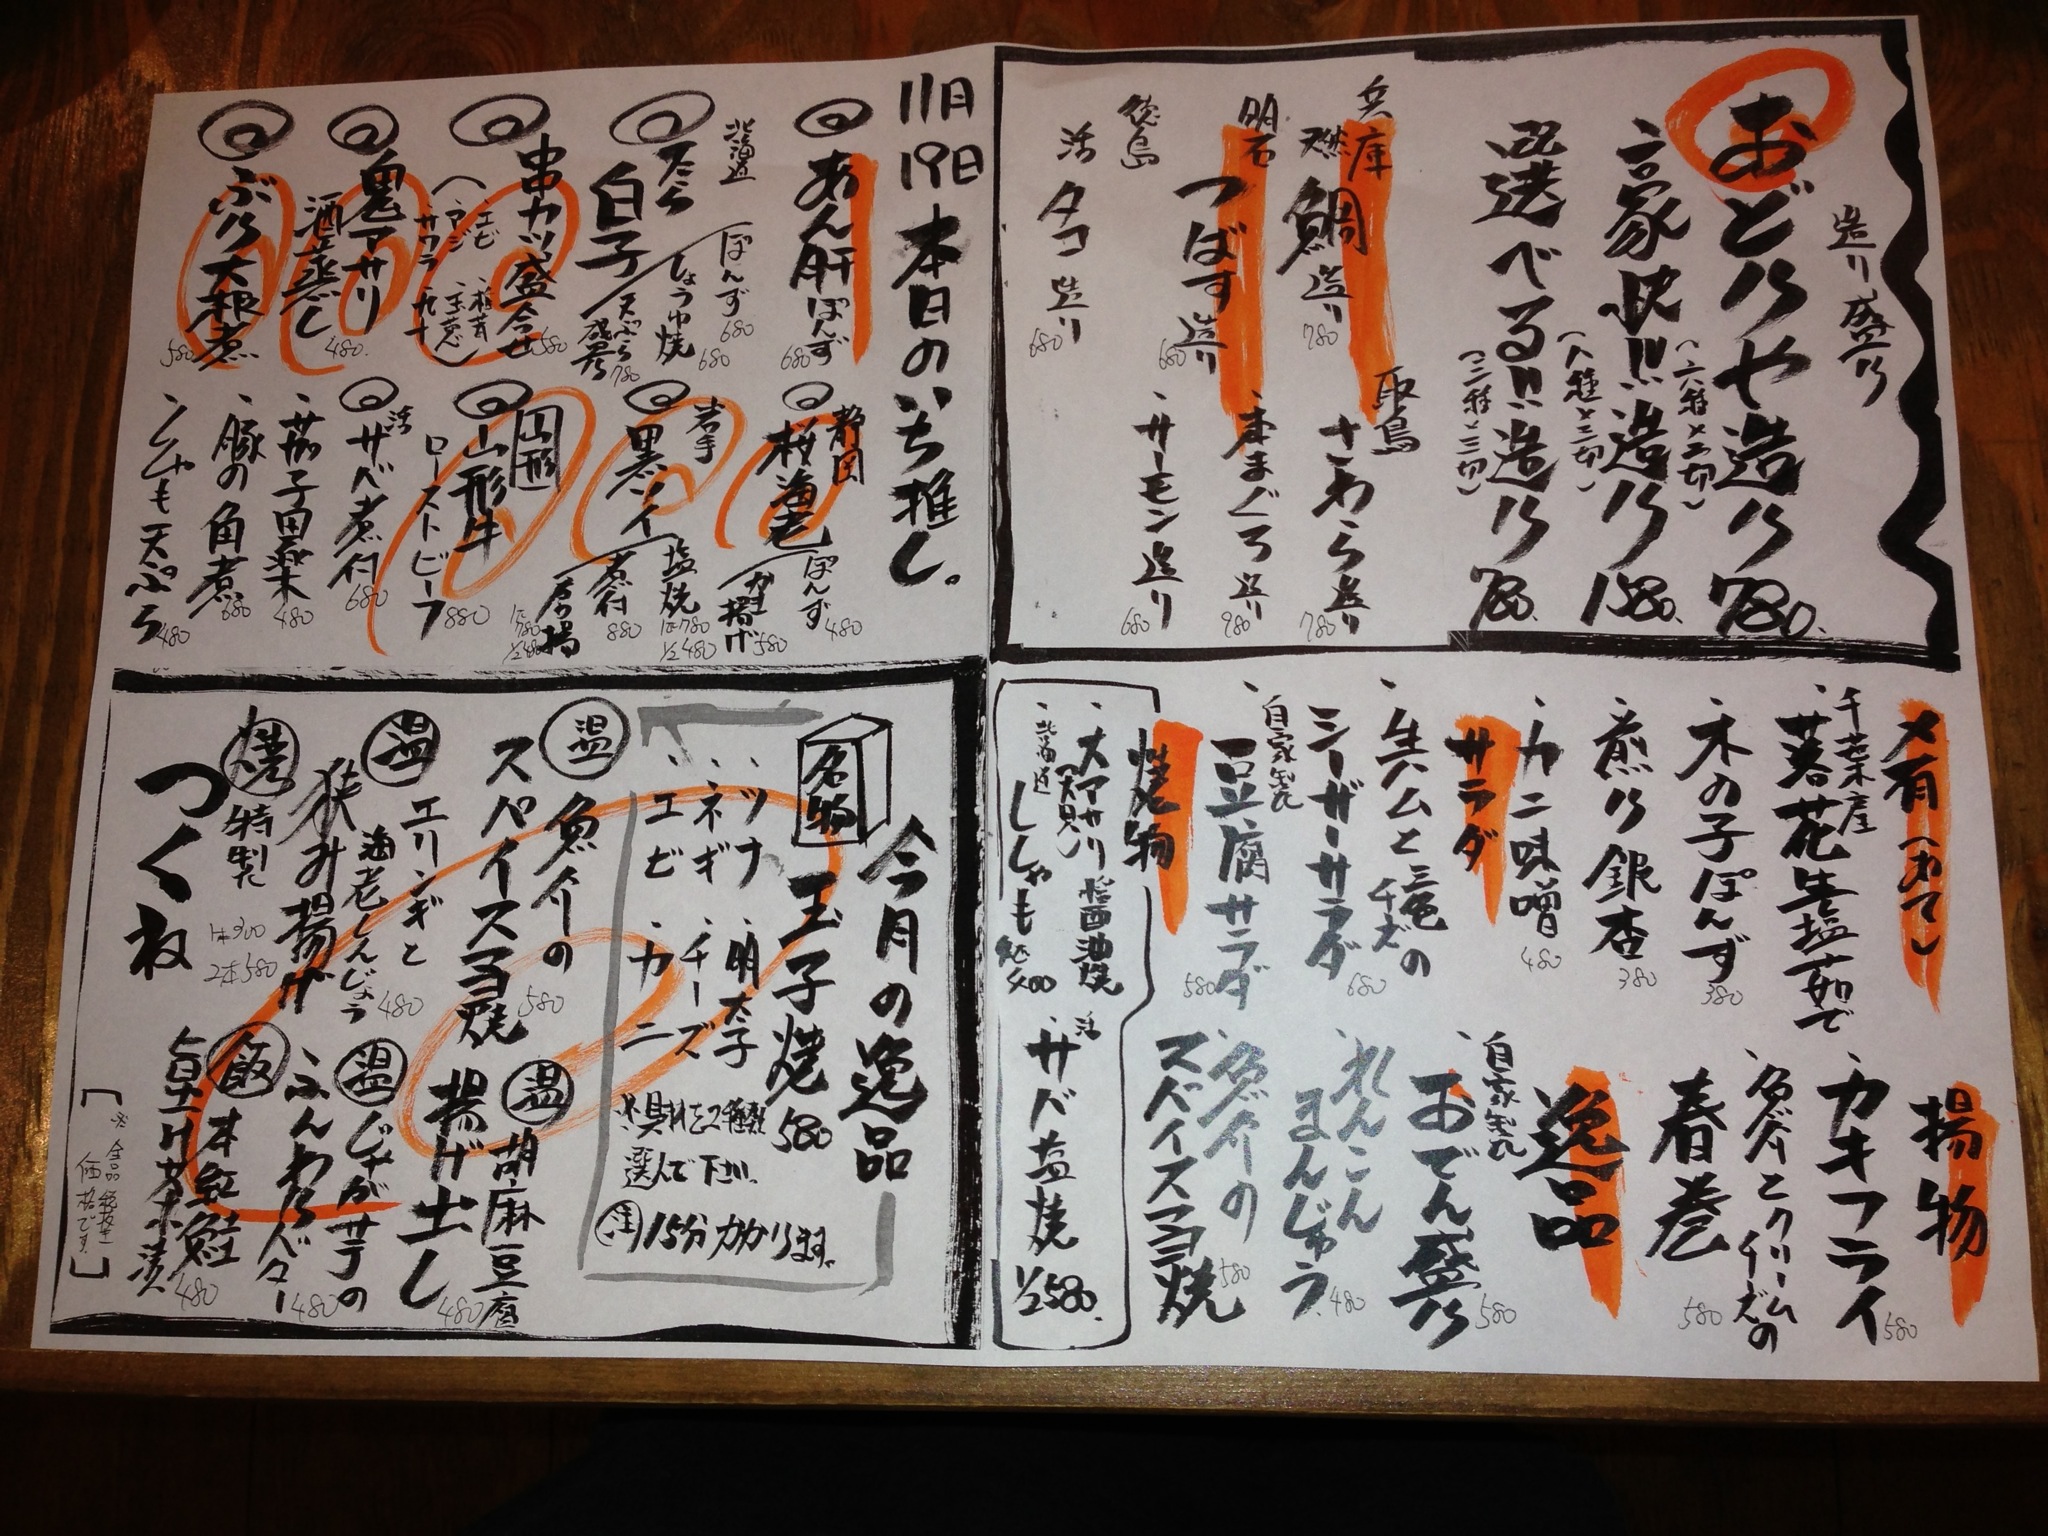 造り盛り
おどりや造り 780.
(六種×二切)
豪快!!造り 1580.
(八種×二切)
選べる!!造り 780.
(三種×三切)
兵庫
天然 鯛 造り 780
明石
つばす 造り 680
徳島
活 タコ 造り 680
鳥取
さわら造り 780
本まぐろ造り 980
サーモン造り 680
11月19日 本日のいち推し。
あん肝ぽんず 680
北海道
たら白子
ぽんず 680
しょうゆ焼 680
天ぷら 780
串カツ盛合せ 580
(エビ
アジ
サワラ
鬼アサリ酒蒸し 480.
ぶり大根煮 580
静岡
桜海老
ぽんず 480
かき揚げ 580
岩手
黒ソイ
塩焼 1匹780 1/2 480
煮付 880
唐揚 1匹780 1/2 480
山形
山形牛
ローストビーフ 880
活
サバ煮付 680
茄子田楽 480
豚の角煮 680
ししゃも天ぷら 480
〆有(あて)
千葉県産
落花生塩茹で
木の子ぽんず 380
煎り銀杏 380
カニ味噌 480
サラダ
生ハムと三色チーズの
シーザーサラダ 680
自家製
豆腐サラダ 580
焼物
大アサリ醤油焼
北海道 ししゃも
活
サバ塩焼 1/2 580.
揚物
カキフライ 580
魚介とクリームチーズの
春巻 580
逸品
自家製
おでん盛り 580
れんこんまんじゅう 480
魚介の
スパイスマヨ焼 580
今月の逸品
名物
玉子焼 580
ツナ
明太子
ネギ
チーズ
エビ
カニ
※具材を2種類
選んで下さい。
注 15分かかります。
温 魚介の
スパイスマヨ焼 580
温 エリンギと
海老しんじょう
挟み揚げ 480
焼 特製
つくね
1本300
2本580
温 胡麻豆腐
揚げ出し 480
温 じゃがサラの
ふんわりバター 480
飯 本紅鮭
出汁茶漬 480
[※全品税抜き
価格です。]